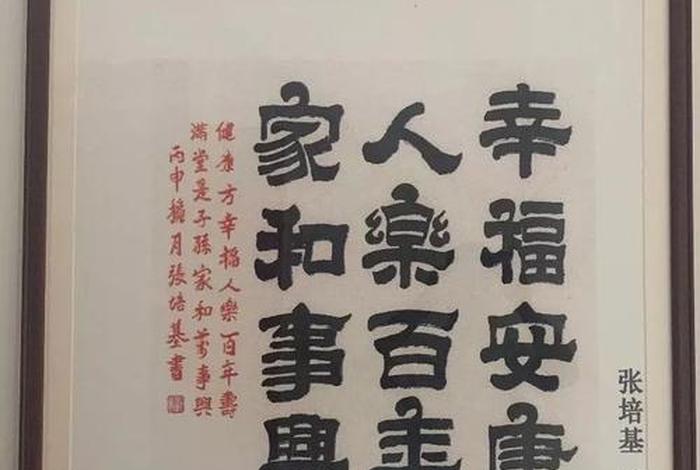 幸福安康
人樂百年
家和事興
健康方幸福人樂百年壽
滿堂是子孫家和萬事興
丙申臘月張培基書
张培基